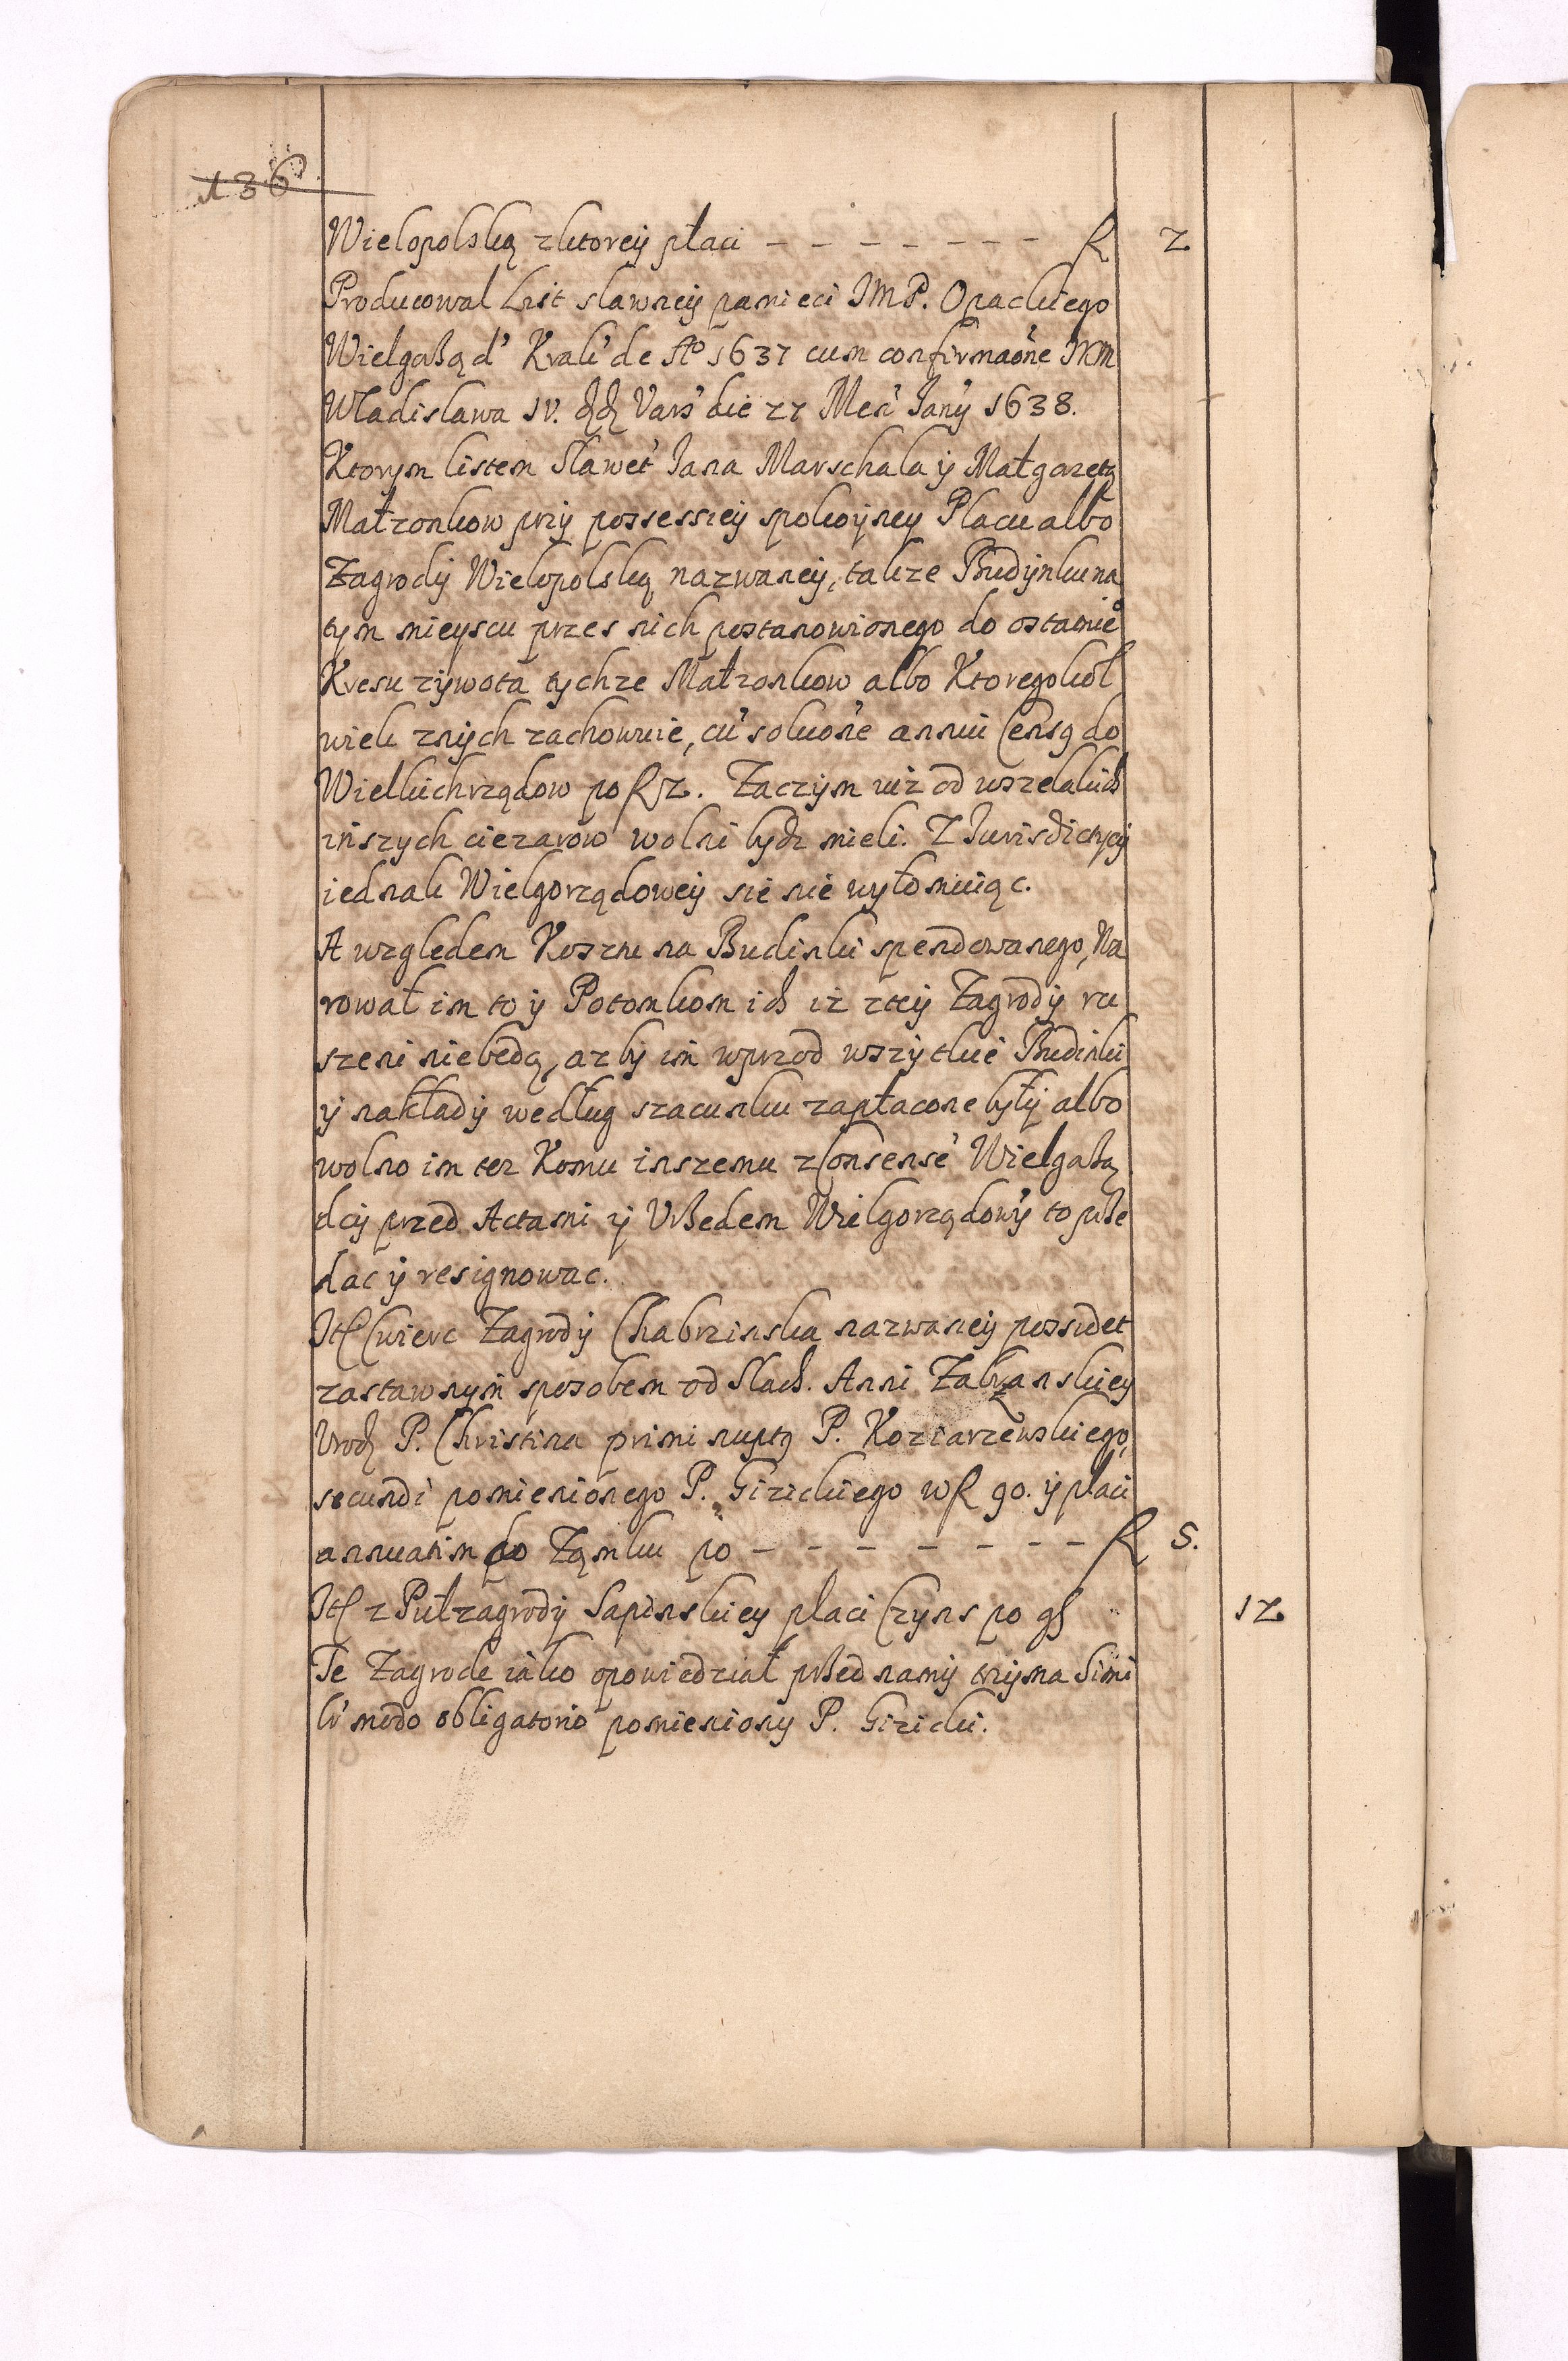 136
Wielopolską zktoreÿ płaci – – – – – – – – fl 2
Producowal List sławneÿ pamieci JMP. Opackiego
Wielgoßąd' Krak' de A° 1637 cum confirmaone JKM
Władislawa IV. dd Vars' die 27 Men' Janÿ 1638.
Ktorym listem Sławet' Jana Marschala ÿ Małgorzetę
Małzonkow przÿ possessieÿ spokoÿney Placu albo
Zagrodÿ Wielopolską nazwaneÿ, takze Budÿnku na
tym mieyscu przes nich postanowionego do ostatnie°
Kresu zÿwota tychze Małzonkow albo Ktoregokol
wiek znÿch zachowuie, cu' soluo'ne annui Censq do
Wielkichrządow po fl 2. Zaczÿm iuż od wszelakich
inszych ciezarow wolni bydz mieli. Z Jurisdictyeÿ
iednak Wielgorządoweÿ sie nie wyłomuiąc.
A wzgledem Kosztu na Budinki spendowanego, Wa
rował im to ÿ Potomkom ich iż zteÿ Zagrodÿ ru
szeni niebedą, az bÿ im wprzod wszÿtkie Budinki
ÿ nakładÿ według szacunku zapłacone bÿłÿ albo
wolno im tez Komu inszemu zConsense' Wielgoßą
dcÿ przed Actami ÿ Vrßedem Wielgorządowÿ to pße
dac ÿ resignowac.
Jtl Cwierc Zagrodÿ Chabrzinska nazwaneÿ possidet
zastawnÿm sposobem od Slach. Anni Zabrzanskiey
Vrod P. Christina primi nuptq P. Koziarzewskiego,
secundi pomienionego P. Gizickiego w fl 90. ÿ płaci
annuatim do Zamku po – – – – – – – – fl 5.
Jtl z Pułzagrodÿ Sapinskiey płaci Czÿns po gß 12
Te Zagrode iako opowiedział pßed namÿ trzÿma Simi
li' modo obligatorio pomieniony P. Gizicki.